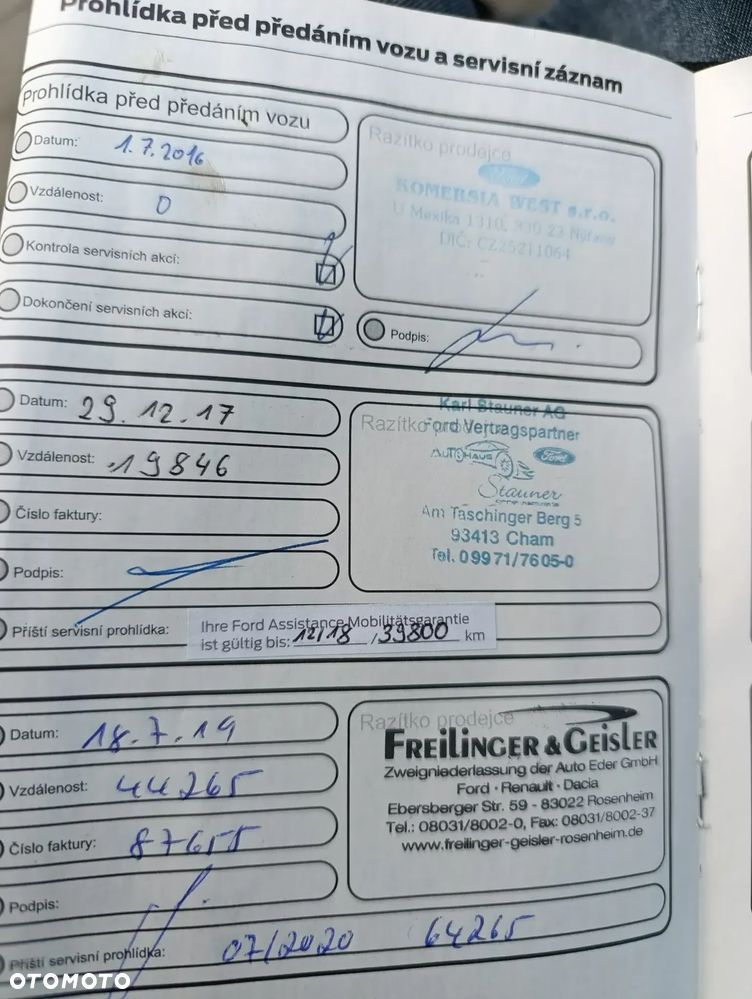 Prohlídka před předáním vozu a servisní záznam
Prohlídka před předáním vozu
Datum: 1.7.2016
Vzdálenost: 0
Kontrola servisních akcí:
Dokončení servisních akcí:
Razítko prodejce
Ford
KOMERSIA WEST s.r.o.
U Mexika 1310, 330 23 Nýřany
DIČ: CZ25211064
Podpis:
Datum: 29.12.17
Vzdálenost: 19846
Číslo faktury:
Podpis:
Karl Stauner AG
Razítko
Ford Vertragspartner
AUTOHAUS
Ford
Stauner
Am Taschinger Berg 5
93413 Cham
Tel. 09971/7605-0
Příští servisní prohlídka:
Ihre Ford Assistance Mobilitätsgarantie
ist gültig bis: 12/18 / 39800 km
Datum: 18.7.19
Vzdálenost: 44265
Číslo faktury: 87655
Podpis:
Razítko prodejce
FREILINGER & GEISLER
Zweigniederlassung der Auto Eder GmbH
Ford · Renault · Dacia
Ebersberger Str. 59 - 83022 Rosenheim
Tel.: 08031/8002-0, Fax: 08031/8002-37
www.freilinger-geisler-rosenheim.de
Příští servisní prohlídka: 07/2020 64265
OTOMOTO